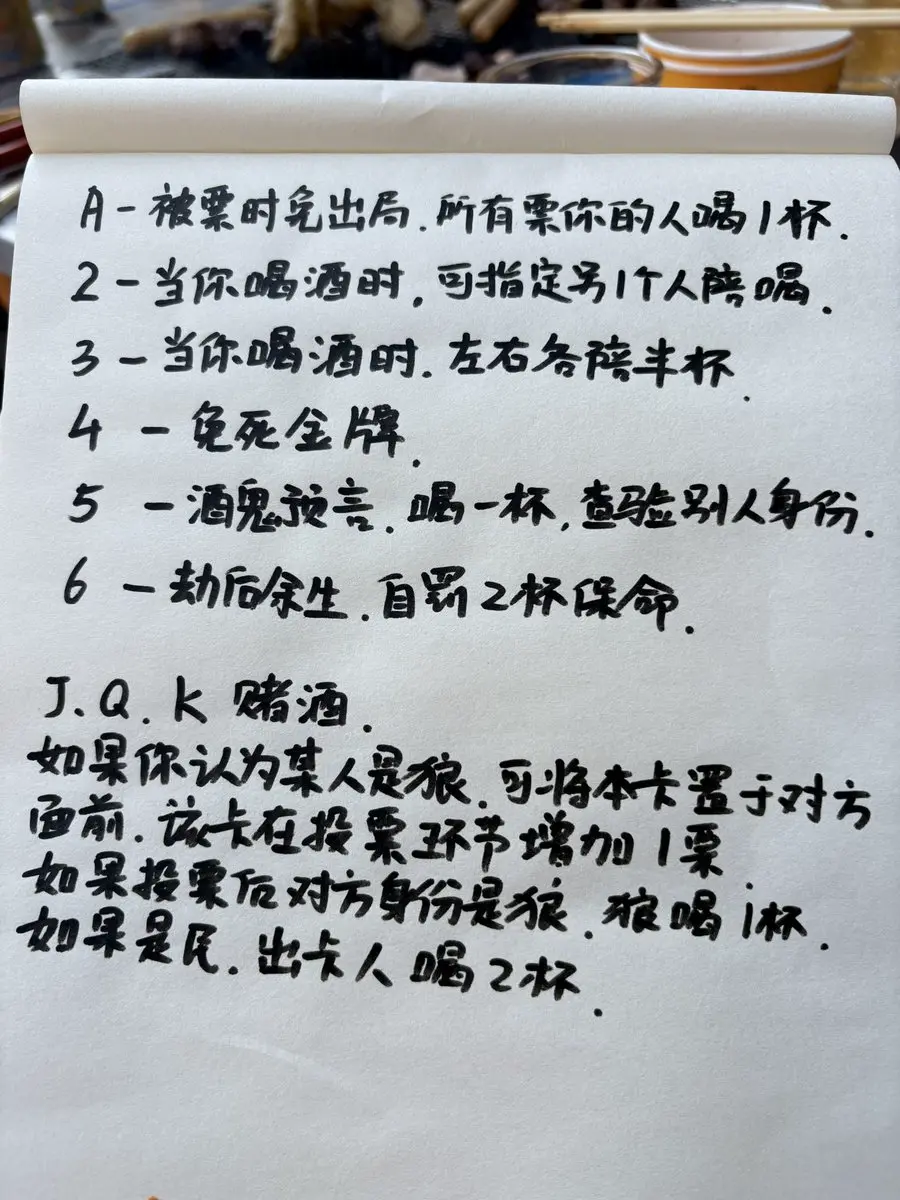 A - 被票时免出局.所有票你的人喝1杯.
2 - 当你喝酒时,可指定另1个人陪喝.
3 - 当你喝酒时.左右各陪半杯.
4 - 免死金牌.
5 - 酒鬼预言.喝一杯,查验别人身份.
6 - 劫后余生.自罚2杯保命.
J.Q.K 赌酒.
如果你认为某人是狼.可将本卡置于对方
面前.该卡在投票环节增加1票.
如果投票后对方身份是狼.狼喝1杯.
如果是民.出卡人喝2杯.